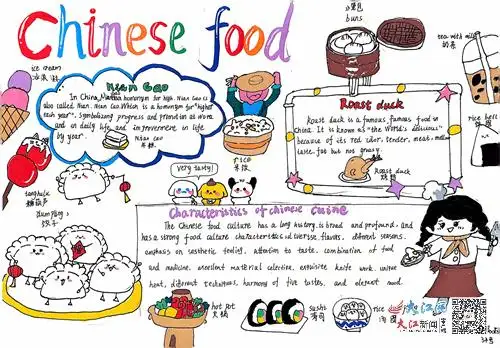 Chinese food
小笼包
buns
tea with milk
奶茶
ice cream
冰淇淋
Nian Gao
In China, Nian homonym for high. Nian Gao is
also called Nian. Nian Gao Which is a homonym for "higher
each year". Symbolizing progress and promotion at work
and in daily life and improvement in life
by year".
Nian Gao
年糕
rice
米饭
Roast duck
Roast duck is a famous, famous food in
China. It is known as "the World's delicious"
because of its red color, tender, meat, mellow
taste, fat but not greasy.
Roast duck
烤鸭
rice ball
tanghulu
糖葫芦
Very tasty!
Dumplings
饺子
Characteristics of chinese cuisine
The Chinese food culture has a long history, is broad and profound, and
has a strong food culture characteristics of diverse flavors, different seasons,
emphasis on aesthetic feeling, attention to taste, combination of food
and medicine, excellent material selection, exquisite knife work, unique
heat, different techniques, harmony of five tastes, and elegant mood.
hot pot
火锅
sushi
寿司
rice
大江网
大江新闻